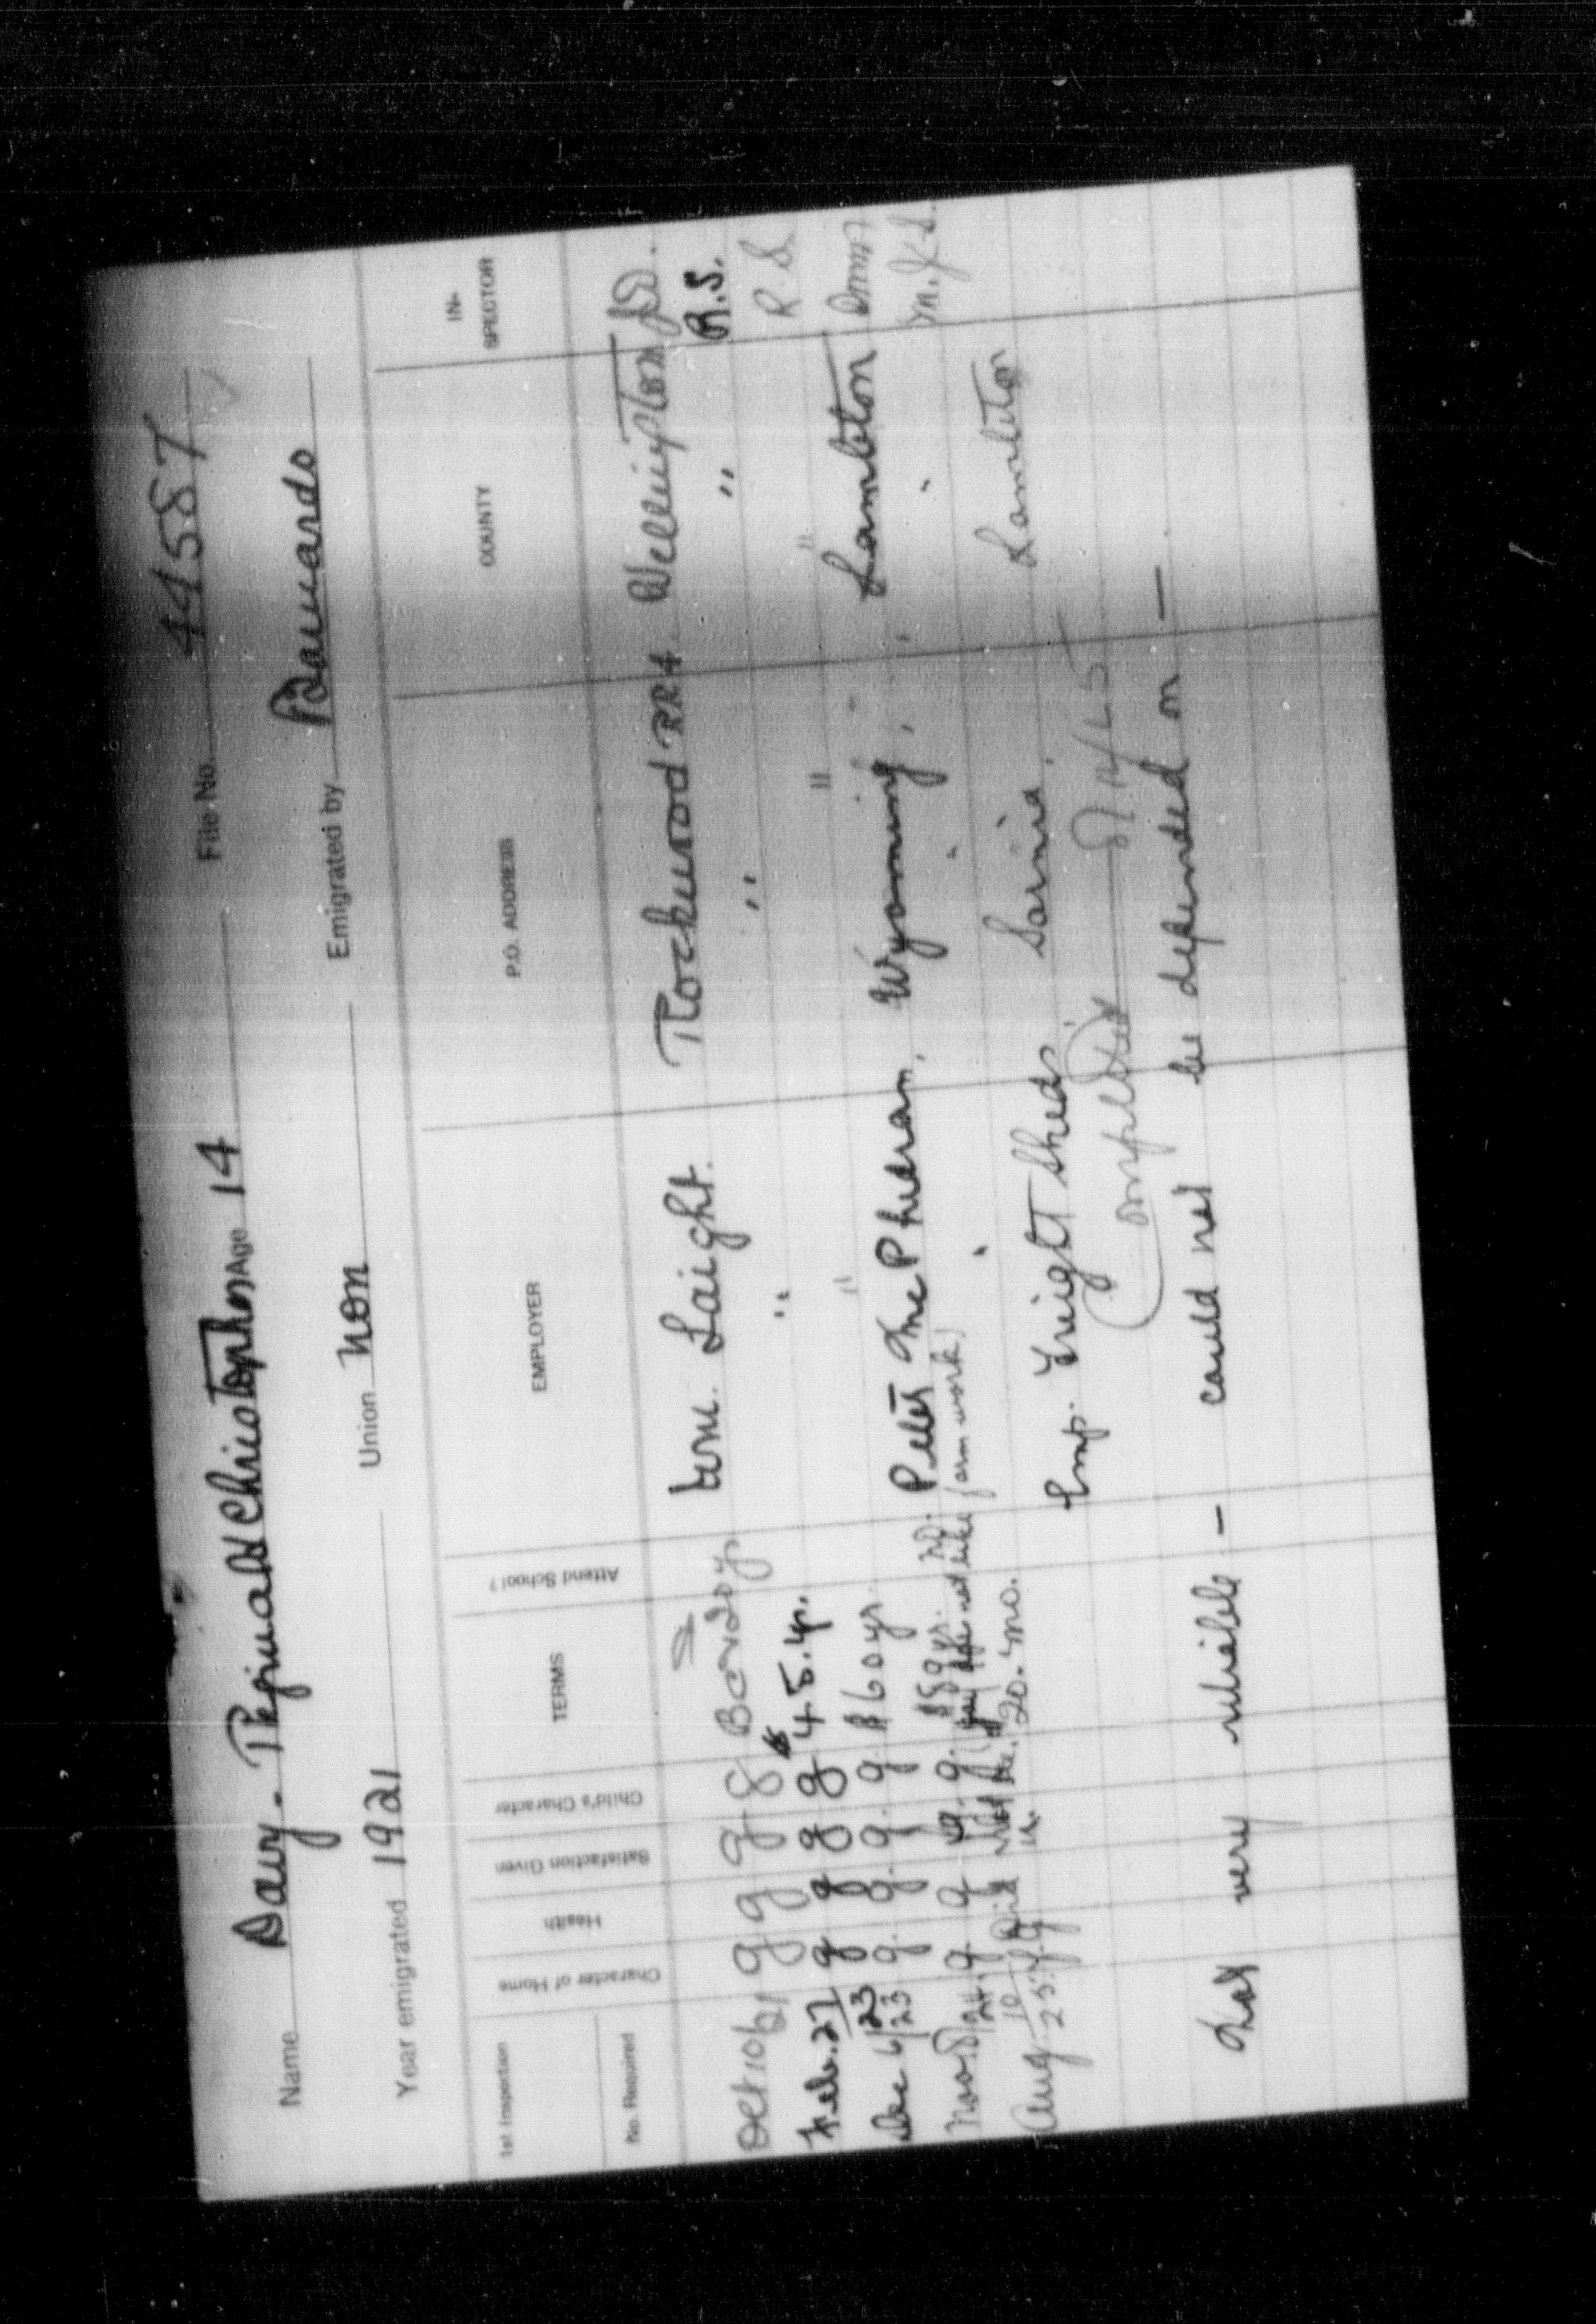 Name Davy - Reginald Christopher Age 14 File No. 44587
Year emigrated 1921 Union non Emigrated by Barnardo
1st Inspection
No. Required
Character of Home
Health
Satisfaction Given
Child's Character
TERMS
Attend School?
EMPLOYER
P.O. ADDRESS
COUNTY
IN-
SPECTOR
Oct 10/21 g g g g Wm. Laight. Rockwood RR4. Wellington
Feb. 27 g g g g 45. yr. " " " R.S.
Dec 6/23 g. g. g. g $60 yr. " " " R S
g. g g. yr. Peter McPhedran, Wyoming, Lambton
Did not like farm work)
Aug 10 25. 20. mo. Emp. Freight Sheds, Sarnia, Lambton
Completed
Lad very reliable - could not be depended on -